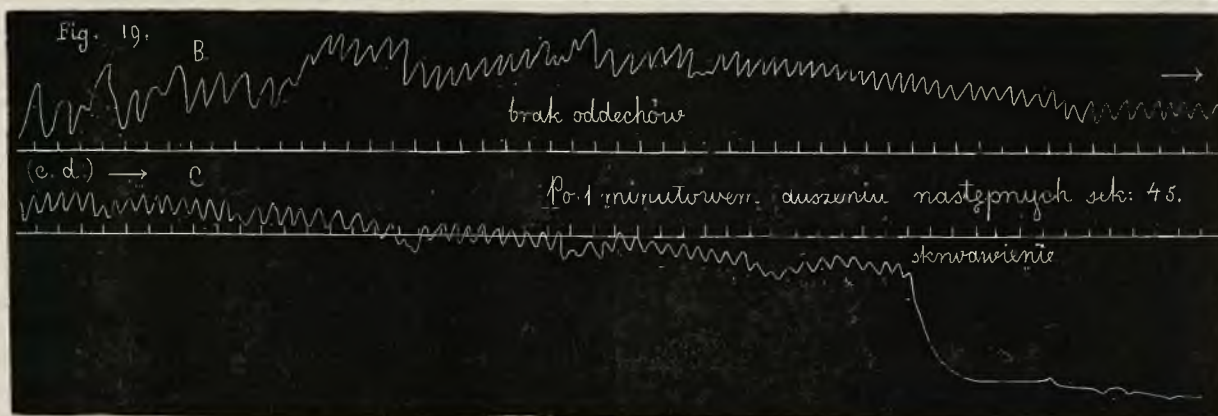 Fig. 19.
B
brak oddechów
(c. d.) → C
Po 1 minutowem duszeniu następnych sek: 45.
skrwawienie